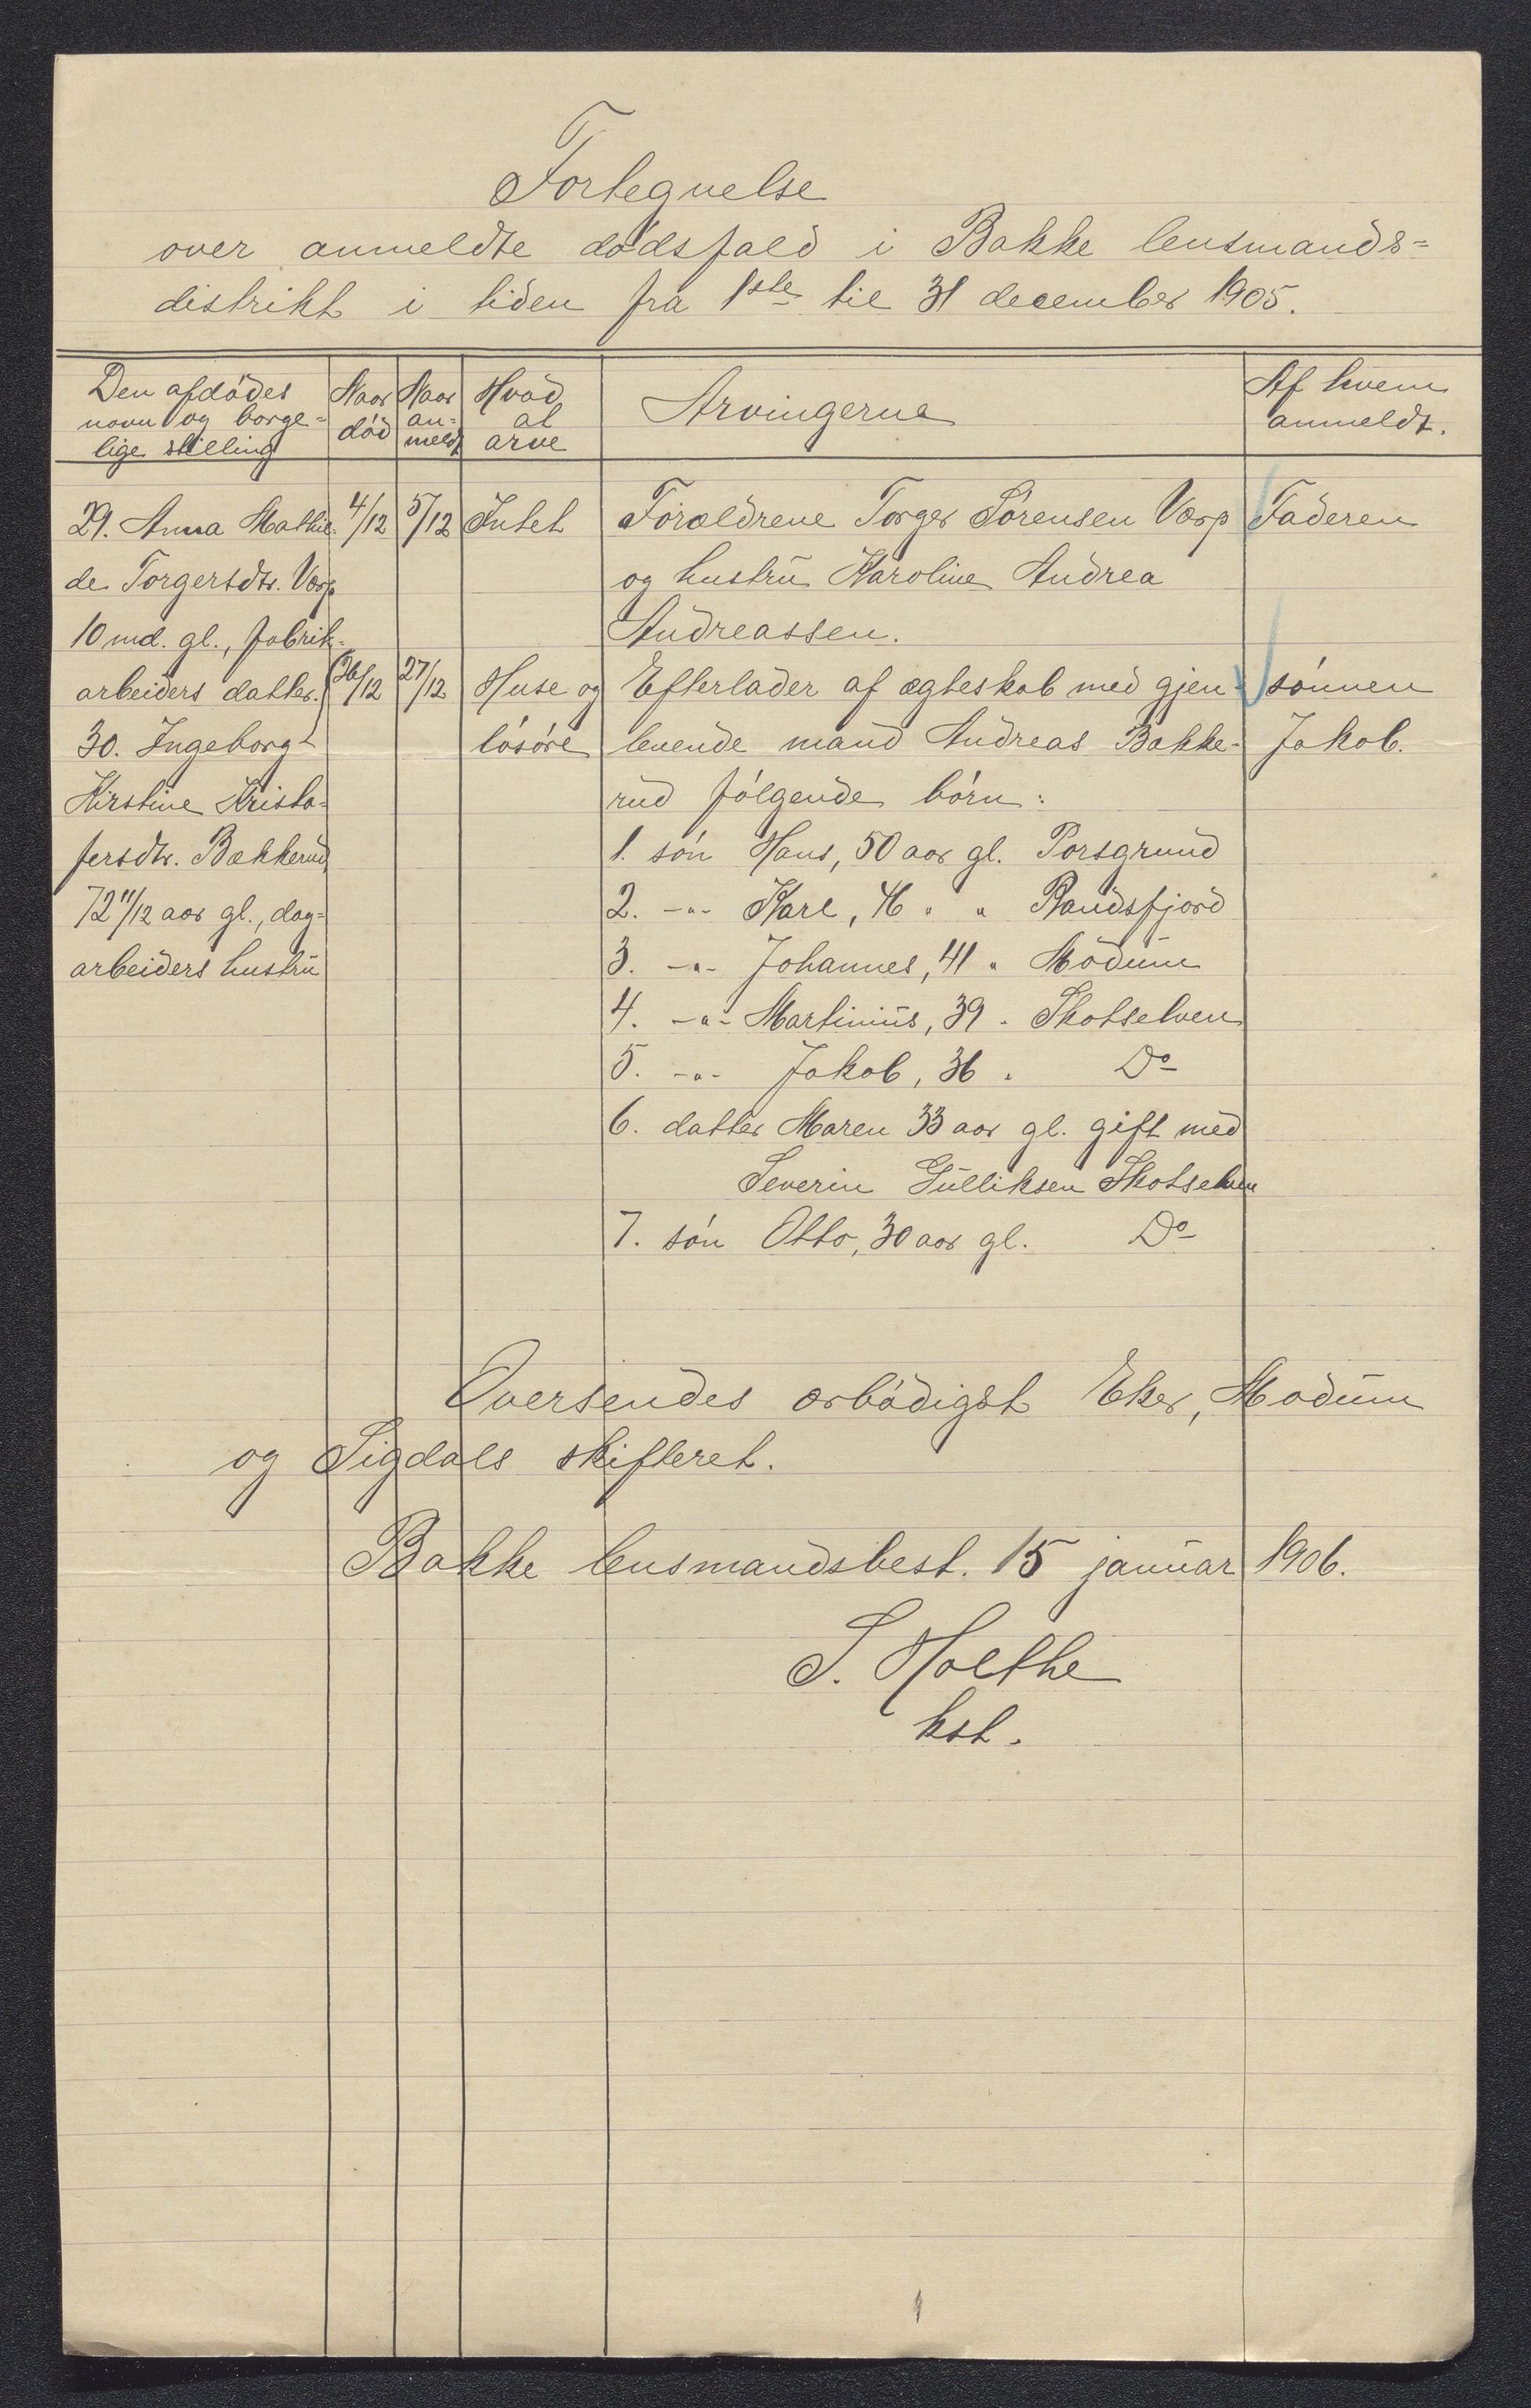 Fortegnelse
over anmeldte dødsfald i Bakke lensmands=
distrikt i tiden fra 1ste til 31 december 1905.
Den afdødes
navn og borge=
lige stilling
Naar
død
Naar
an=
meldt
Hvad
at
arve
Arvingerne
Af hvem
anmeldt.
29. Anna Mathil-
de Torgersdtr. Værp
10 md. gl., fabrik=
arbeiders datter.
4/12
5/12
Intet
Forældrene Torger Sørensen Værp
og hustru Karoline Andrea
Andreassen.
Faderen
30. Ingeborg
Kirstine Kristo=
fersdtr. Bakkerud,
72 11/12 aar gl., dag=
arbeiders hustru
26/12
27/12
Huse og
løsøre
Efterlader af ægteskab med gjen=
levende mand Andreas Bakke=
rud følgende børn:
1. søn Hans, 50 aar gl. Porsgrund
2. -"- Karl, 46 " " Randsfjord
3. -"- Johannes, 41 " Modum
4. -"- Martinius, 39 " Skotselven
5. -"- Jakob, 36 " Do
6. datter Maren 33 aar gl. gift med
Severin Gulliksen Skotselven
7. søn Otto, 30 aar gl. Do
sønnen
Jakob.
Oversendes ærbødigst Eker, Modum
og Sigdals skifteret.
Bakke lensmandsbest. 15 januar 1906.
S. Holthe
kst.